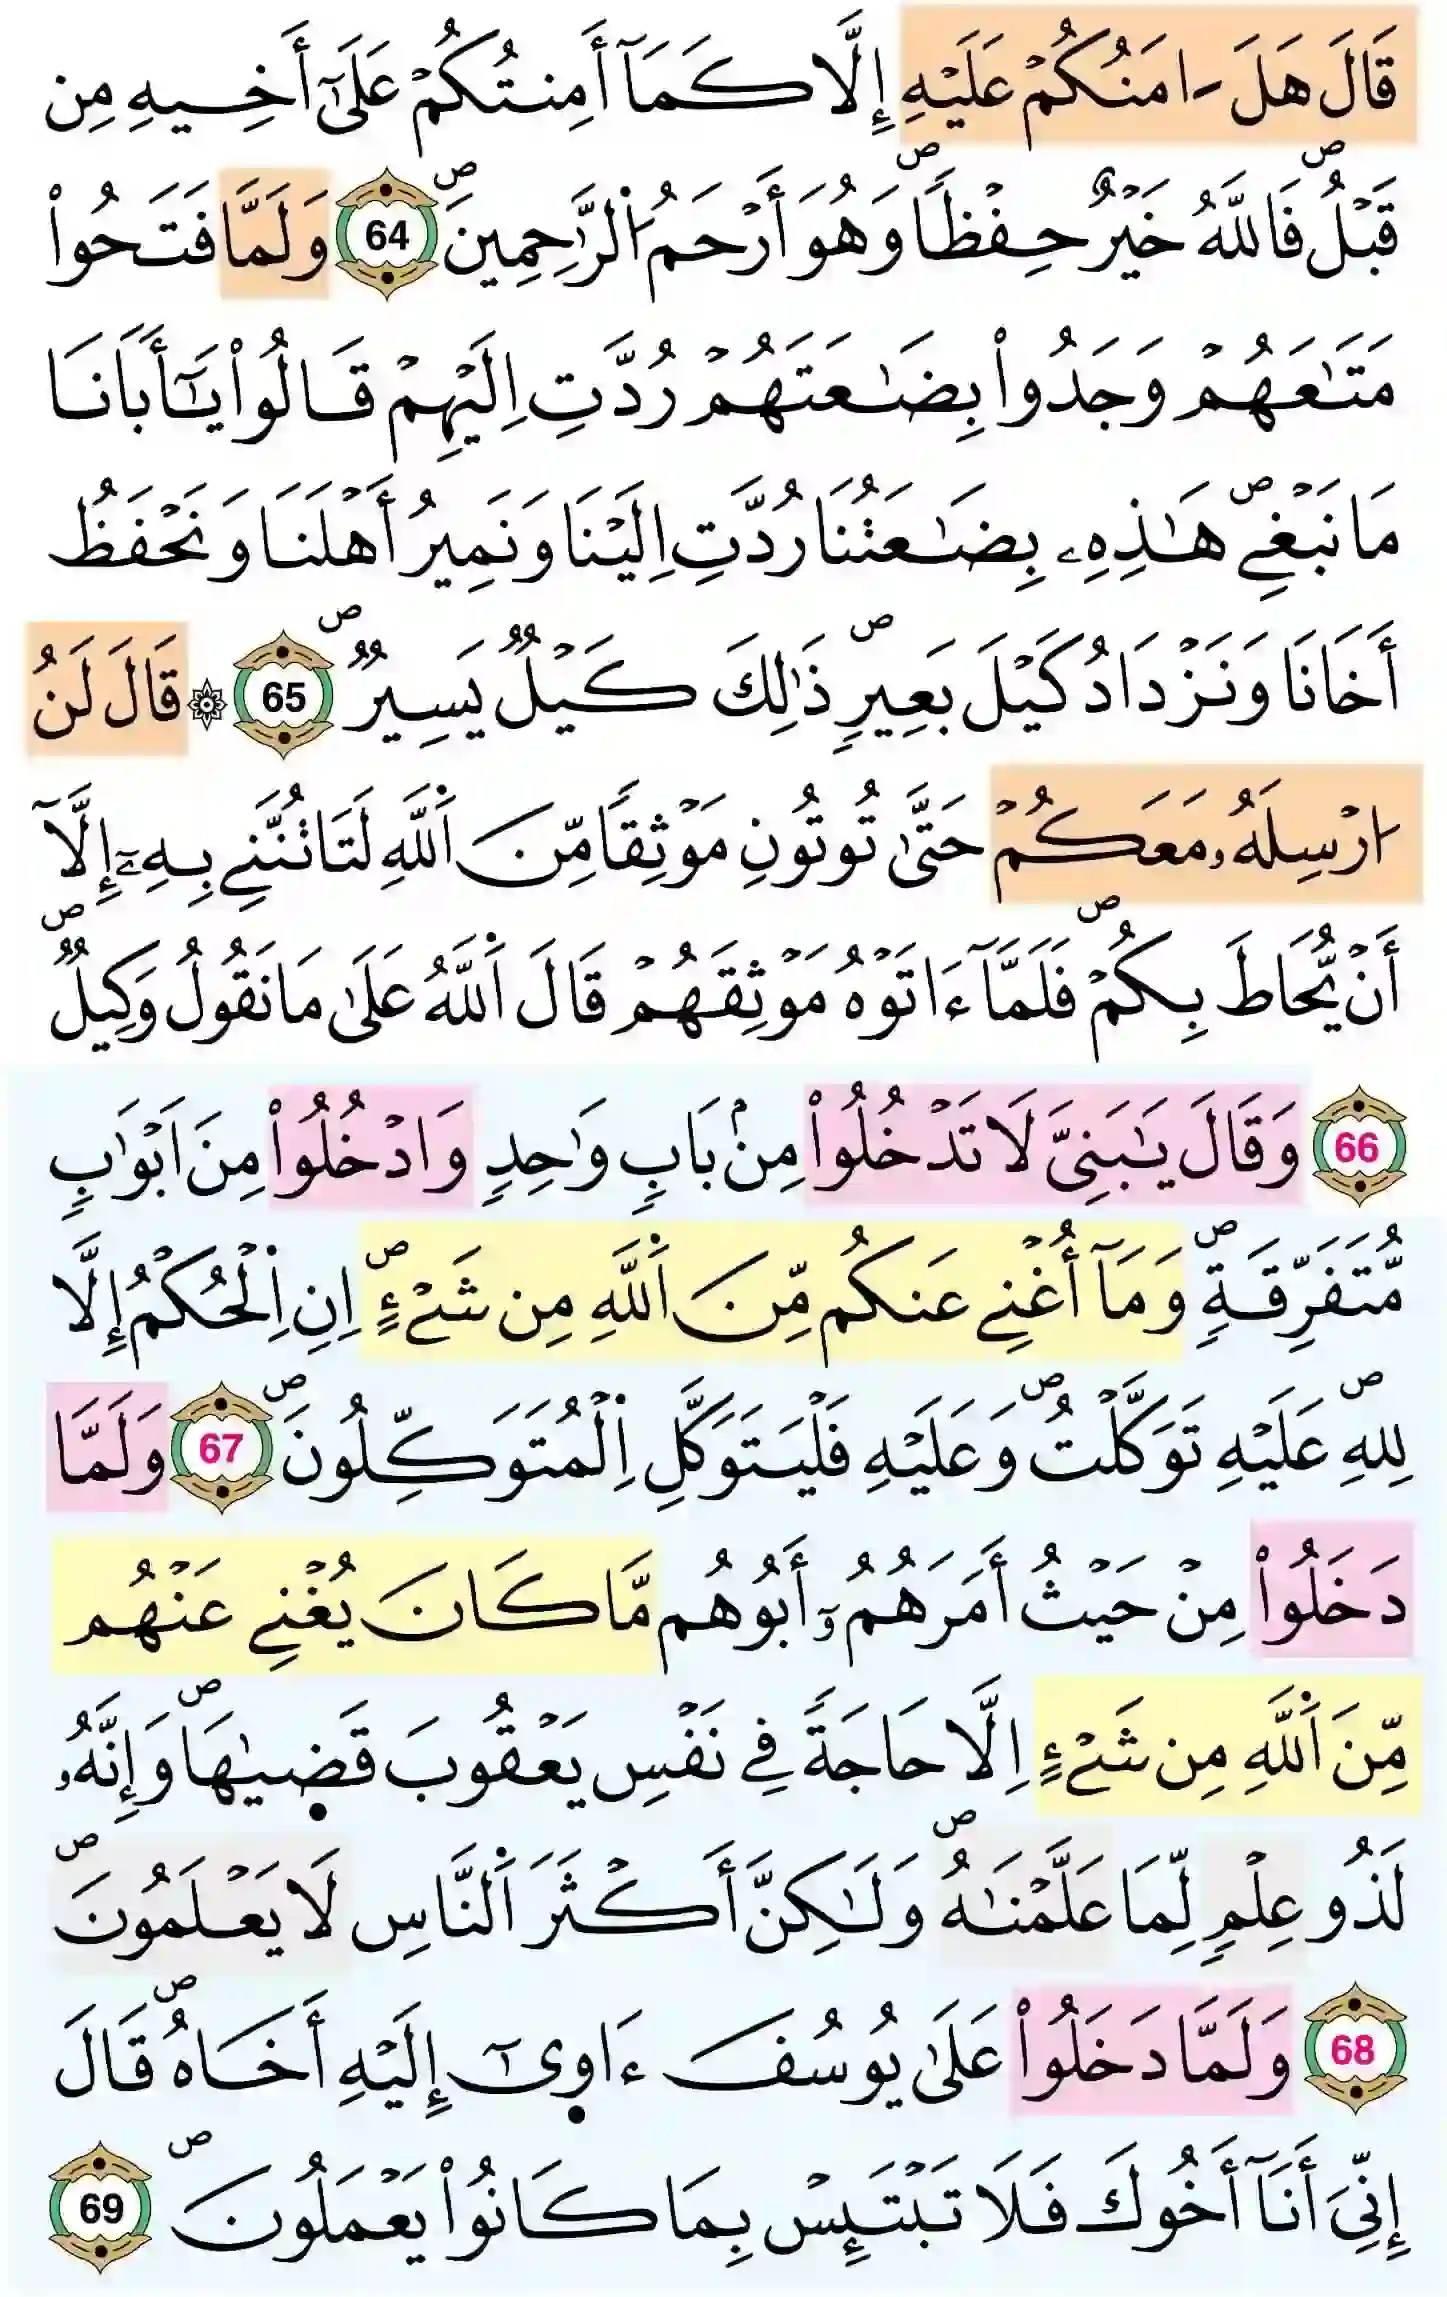 قَالَ هَلَ ـٰامَنُكُمْ عَلَيْهِ إِلَّا كَمَآ أَمِنتُكُمْ عَلَىٰٓ أَخِيهِ مِن
قَبْلُۖ فَاللَّهُ خَيْرٌ حِفْظاًۖ وَهُوَ أَرْحَمُ اُ۬لرَّٰحِمِينَۖ 64 وَلَمَّا فَتَحُواْ
مَتَٰعَهُمْ وَجَدُواْ بِضَٰعَتَهُمْ رُدَّتِ اِلَيْهِمْ قَالُواْ يَٰٓأَبَانَا
مَا نَبْغِےۖ هَٰذِهِۦ بِضَٰعَتُنَا رُدَّتِ اِلَيْنَا وَنَمِيرُ أَهْلَنَا وَنَحْفَظُ
أَخَانَا وَنَزْدَادُ كَيْلَ بَعِيرٍۖ ذَٰلِكَ كَيْلٌ يَسِيرٌۖ 65 ۞ قَالَ لَنُ
ا۟رْسِلَهُۥ مَعَكُمْ حَتَّىٰ تُوتُونِ مَوْثِقاً مِّنَ اَ۬للَّهِ لَتَاتُنَّنِے بِهِۦٓ إِلَّآ
أَنْ يُّحَاطَ بِكُمْۖ فَلَمَّآ ءَاتَوْهُ مَوْثِقَهُمْ قَالَ اَ۬للَّهُ عَلَىٰ مَا نَقُولُ وَكِيلٌۖ
66 وَقَالَ يَٰبَنِيَّ لَا تَدْخُلُواْ مِنۢ بَابٍ وَٰحِدٍ وَادْخُلُواْ مِنَ اَبْوَٰبٍ
مُّتَفَرِّقَةٍۖ وَمَآ أُغْنِے عَنكُم مِّنَ اَ۬للَّهِ مِن شَےْءٍۖ اِنِ اِ۬لْحُكْمُ إِلَّا
لِلهِۖ عَلَيْهِ تَوَكَّلْتُۖ وَعَلَيْهِ فَلْيَتَوَكَّلِ اِ۬لْمُتَوَكِّلُونَۖ 67 وَلَمَّا
دَخَلُواْ مِنْ حَيْثُ أَمَرَهُمُۥٓ أَبُوهُم مَّا كَانَ يُغْنِے عَنْهُم
مِّنَ اَ۬للَّهِ مِن شَےْءٍ اِلَّا حَاجَةً فِے نَفْسِ يَعْقُوبَ قَضِىٰهَاۖ وَإِنَّهُۥ
لَذُو عِلْمٍ لِّمَا عَلَّمْنَٰهُۖ وَلَٰكِنَّ أَكْثَرَ اَ۬لنَّاسِ لَا يَعْلَمُونَۖ
68 وَلَمَّا دَخَلُواْ عَلَىٰ يُوسُفَ ءَاوِىٰٓ إِلَيْهِ أَخَاهُۖ قَالَ
إِنِّيَ أَنَآ أَخُوكَ فَلَا تَبْتَئِسْ بِمَا كَانُواْ يَعْمَلُونَۖ 69